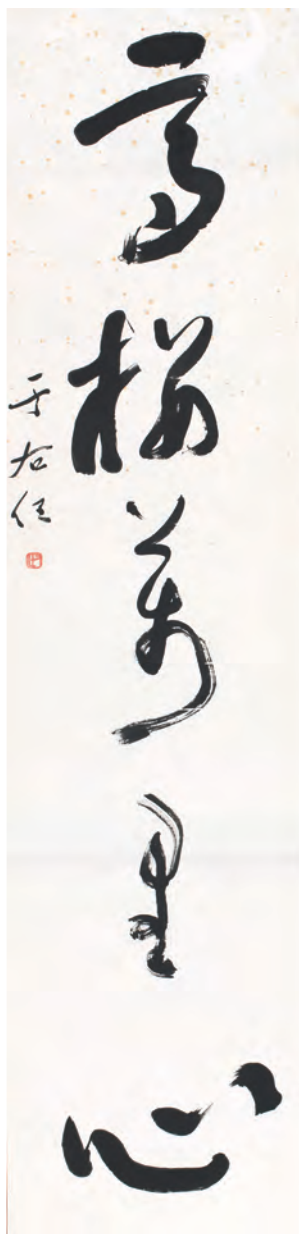 高樓萬里心
于右任